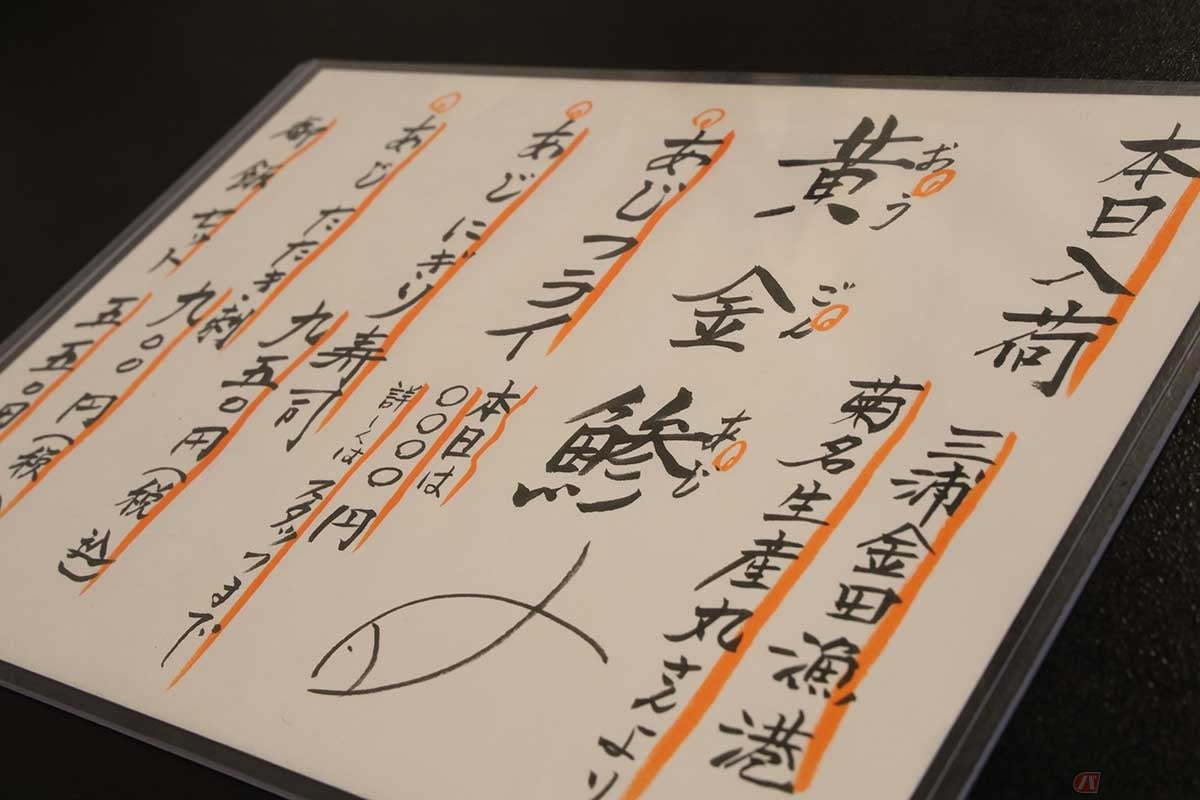 本日入荷
三浦金田漁港
菊名生産丸さんより
おう
黄
ごん
金
あじ
鯵
あじフライ
本日は
〇〇〇〇円
詳しくはスタッフまで
あじにぎり寿司
九五〇円(税込)
あじたたき、刺
九〇〇円(税
御飯セット
五五〇円(税